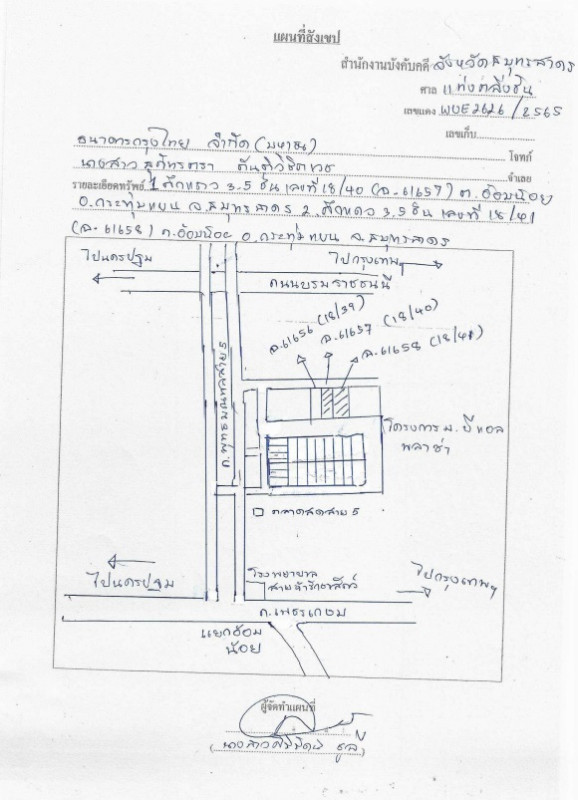 แผนที่สังเขป
สำนักงานบังคับคดี จังหวัดสมุทรสาคร
ศาล แพ่งตลิ่งชัน
เลขแดง ผบE2626/2565
เลขเก็บ
ธนาคารกรุงไทย จำกัด (มหาชน) โจทก์
นางสาว จำเลย
รายละเอียดทรัพย์ 1 ตึกแถว 3.5 ชั้น เลขที่ 18/40 (ฉ.61657) ต.อ้อมน้อย
อ.กระทุ่มแบน จ.สมุทรสาคร 2. ตึกแถว 3.5 ชั้น เลขที่ 18/41
(ฉ.61658) ต.อ้อมน้อย อ.กระทุ่มแบน จ.สมุทรสาคร
ไปนครปฐม
ไปกรุงเทพฯ
ถนนบรมราชชนนี
ฉ.61656 (18/39)
ฉ.61657 (18/40)
ฉ.61658 (18/41)
ถ.พุทธมณฑลสาย 5
โครงการ ม.
พลาซ่า
ตลาดสดสาย 5
ไปนครปฐม
โรงพยาบาล
ไปกรุงเทพฯ
ถ.เพชรเกษม
แยกอ้อม
น้อย
ผู้จัดทำแผนที่